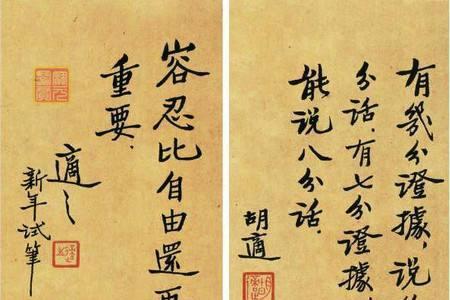 容忍比自由還
重要.
適之
新年試筆
有幾分證據,說
分話.有七分證據
能説八分話.
胡適